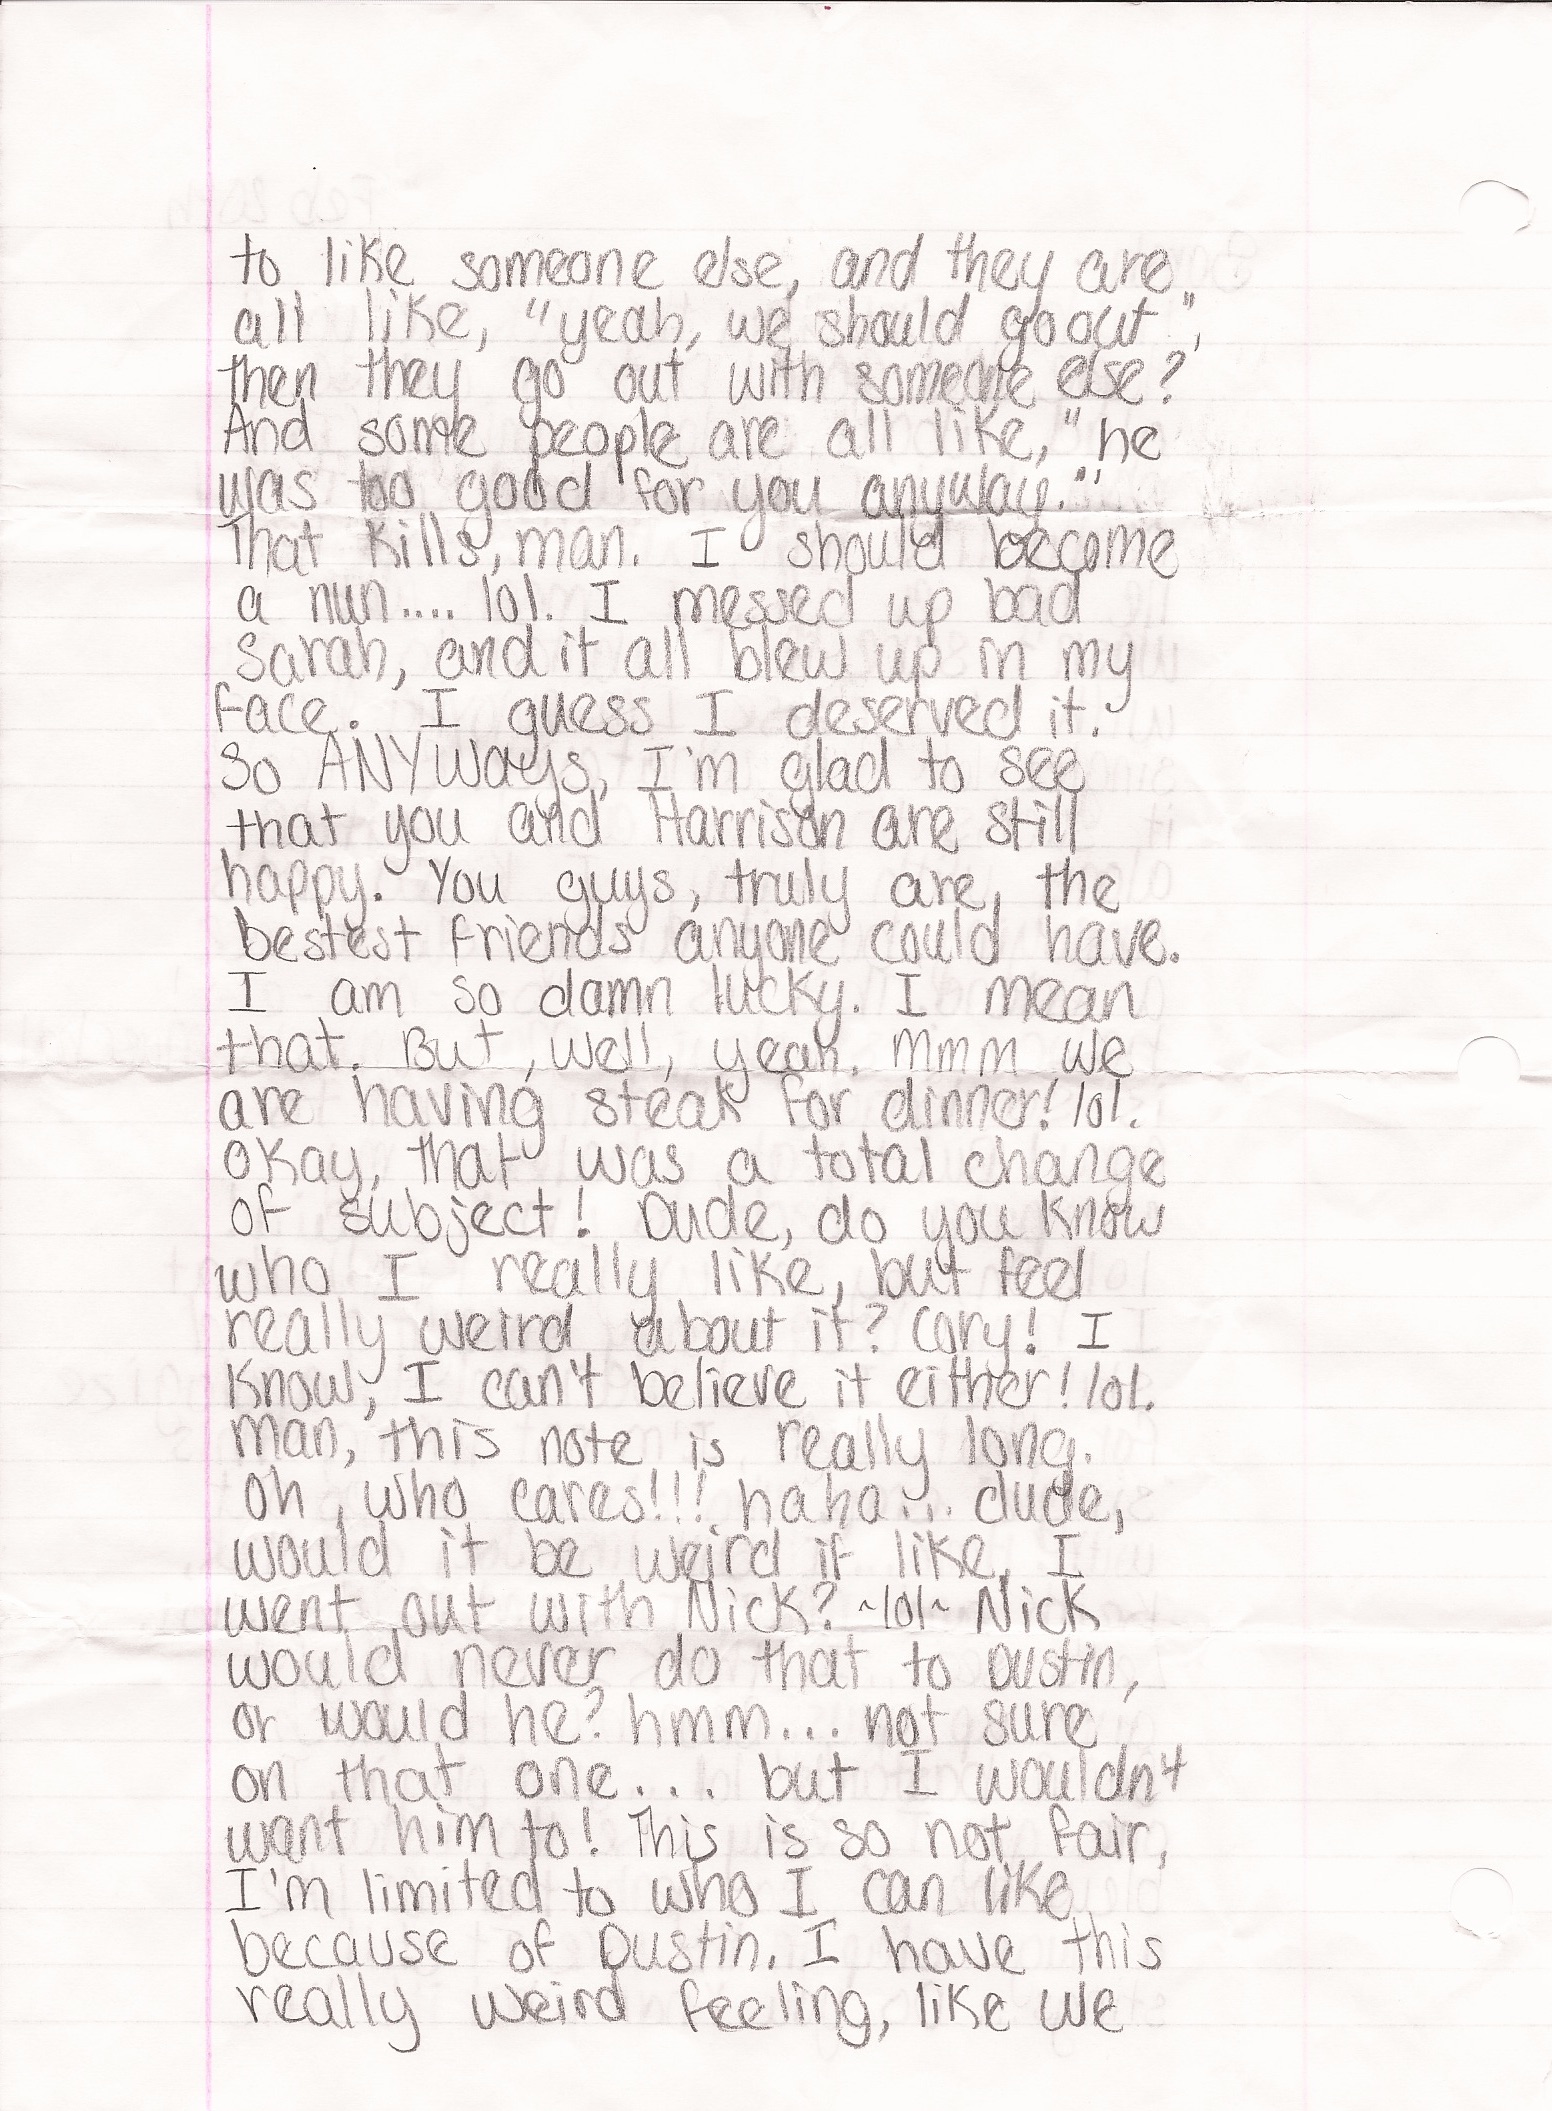 to like someone else, and they are
all like, "yeah, we should go out",
then they go out with someone else?
And some people are all like, "he
was too good for you anyway."
That kills, man. I should become
a nun.... lol. I messed up bad
Sarah, and it all blew up in my
face. I guess I deserved it.
So ANYways, I'm glad to see
that you and Harrison are still
happy. You guys, truly are, the
bestest friends anyone could have.
I am so damn lucky. I mean
that. But, well, yeah. Mmm we
are having steak for dinner! lol.
Okay, that was a total change
of subject! Dude, do you know
who I really like, but feel
really weird about it? Cory! I
know, I can't believe it either! lol.
man, this note is really long.
Oh, who cares!!! haha... dude,
would it be weird if like, I
went out with Nick? ~lol~ Nick
would never do that to Dustin,
or would he? hmm... not sure
on that one... but I wouldn't
want him to! This is so not fair,
I'm limited to who I can like
because of Dustin. I have this
really weird feeling, like we